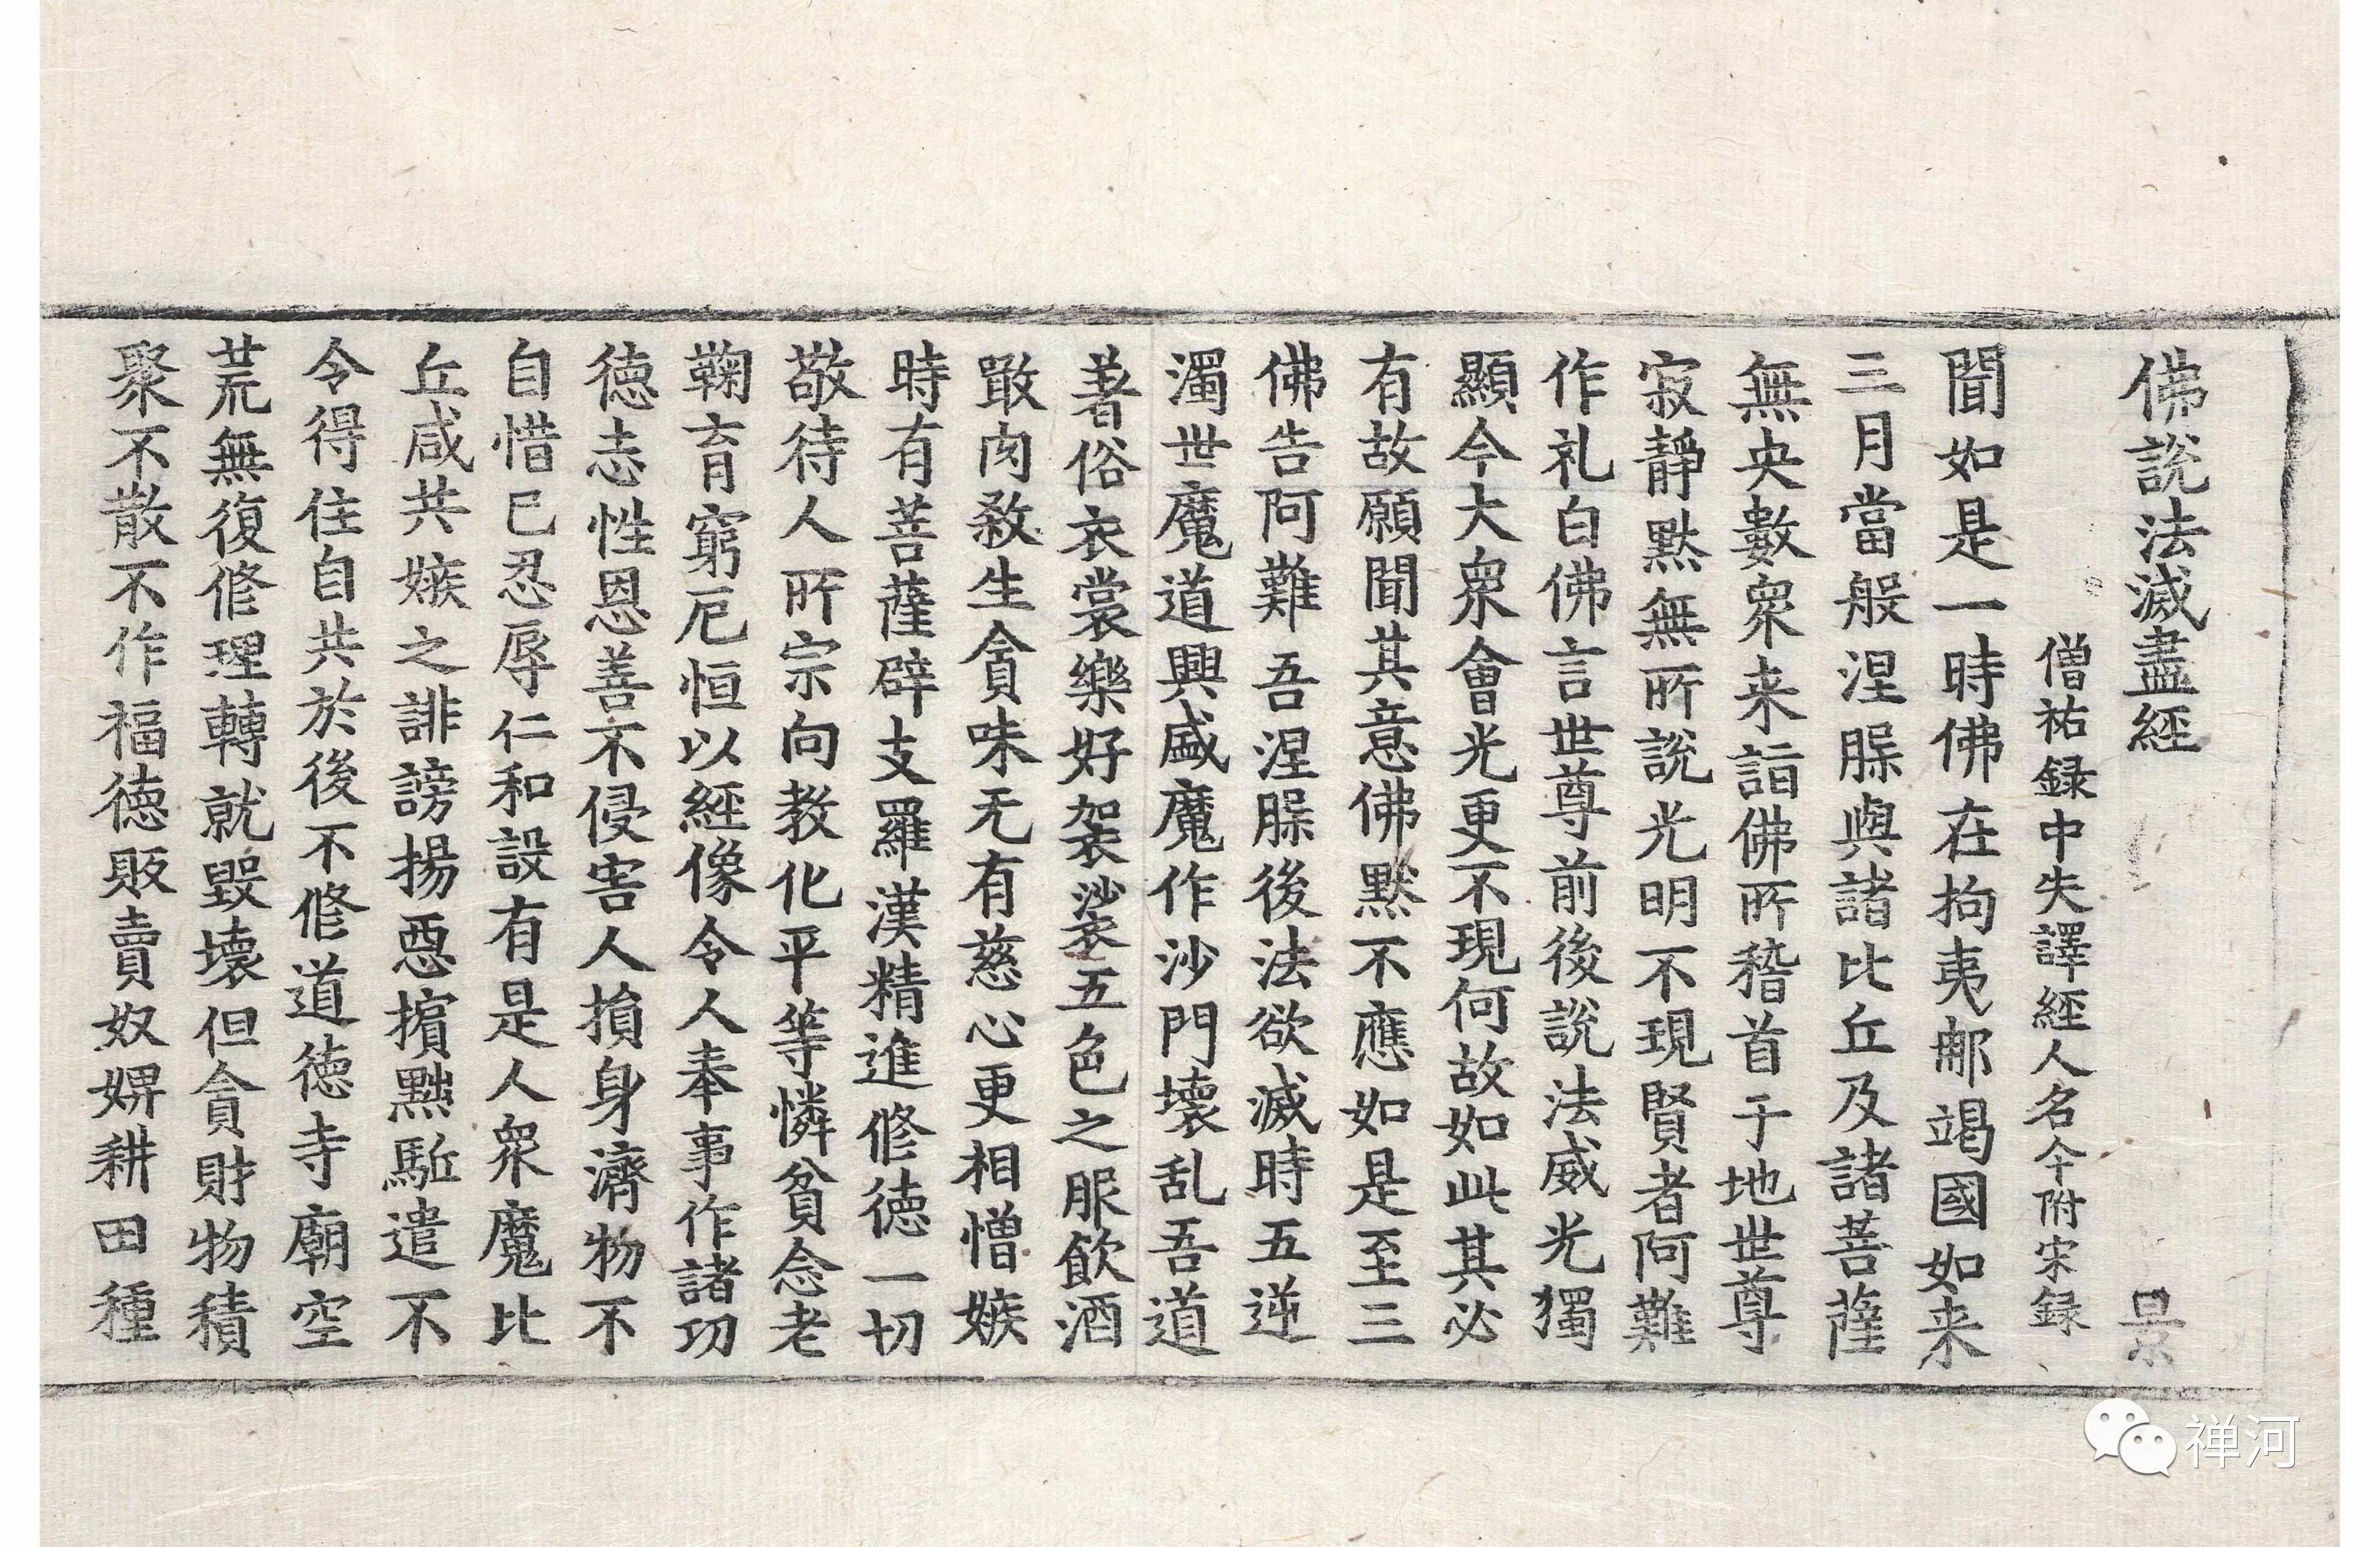 佛說法滅盡經 景
僧祐録中失譯經人名今附宋録
聞如是一時佛在拘夷那竭國如来
三月當般涅槃與諸比丘及諸菩薩
無央數衆来詣佛所稽首于地世尊
寂靜默無所說光明不現賢者阿難
作礼白佛言世尊前後說法威光獨
顯今大衆會光更不現何故如此其必
有故願聞其意佛默不應如是至三
佛告阿難吾涅槃後法欲滅時五逆
濁世魔道興盛魔作沙門壞乱吾道
著俗衣裳樂好袈裟五色之服飲酒
噉肉殺生貪味无有慈心更相憎嫉
時有菩薩辟支羅漢精進修徳一切
敬待人所宗向教化平等憐貧念老
鞠育窮厄恒以經像令人奉事作諸功
徳志性恩善不侵害人損身濟物不
自惜己忍辱仁和設有是人衆魔比
丘咸共嫉之誹謗揚惡擯黜駈遣不
令得住自共於後不修道徳寺廟空
荒無復修理轉就毀壞但貪財物積
聚不散不作福徳販賣奴婢耕田種
禅河